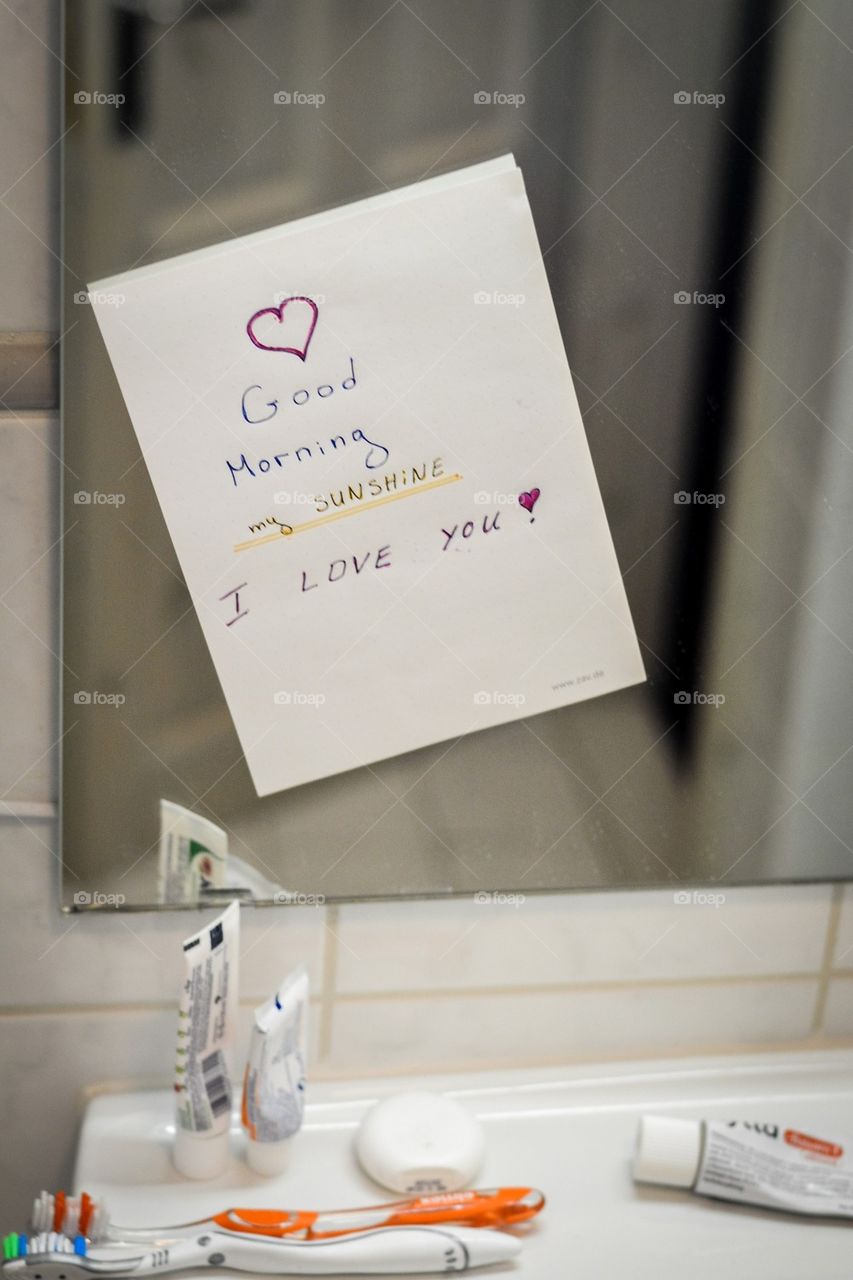 Good
Morning
my SUNSHiNE
I LOVE YOU!
www.zav.de